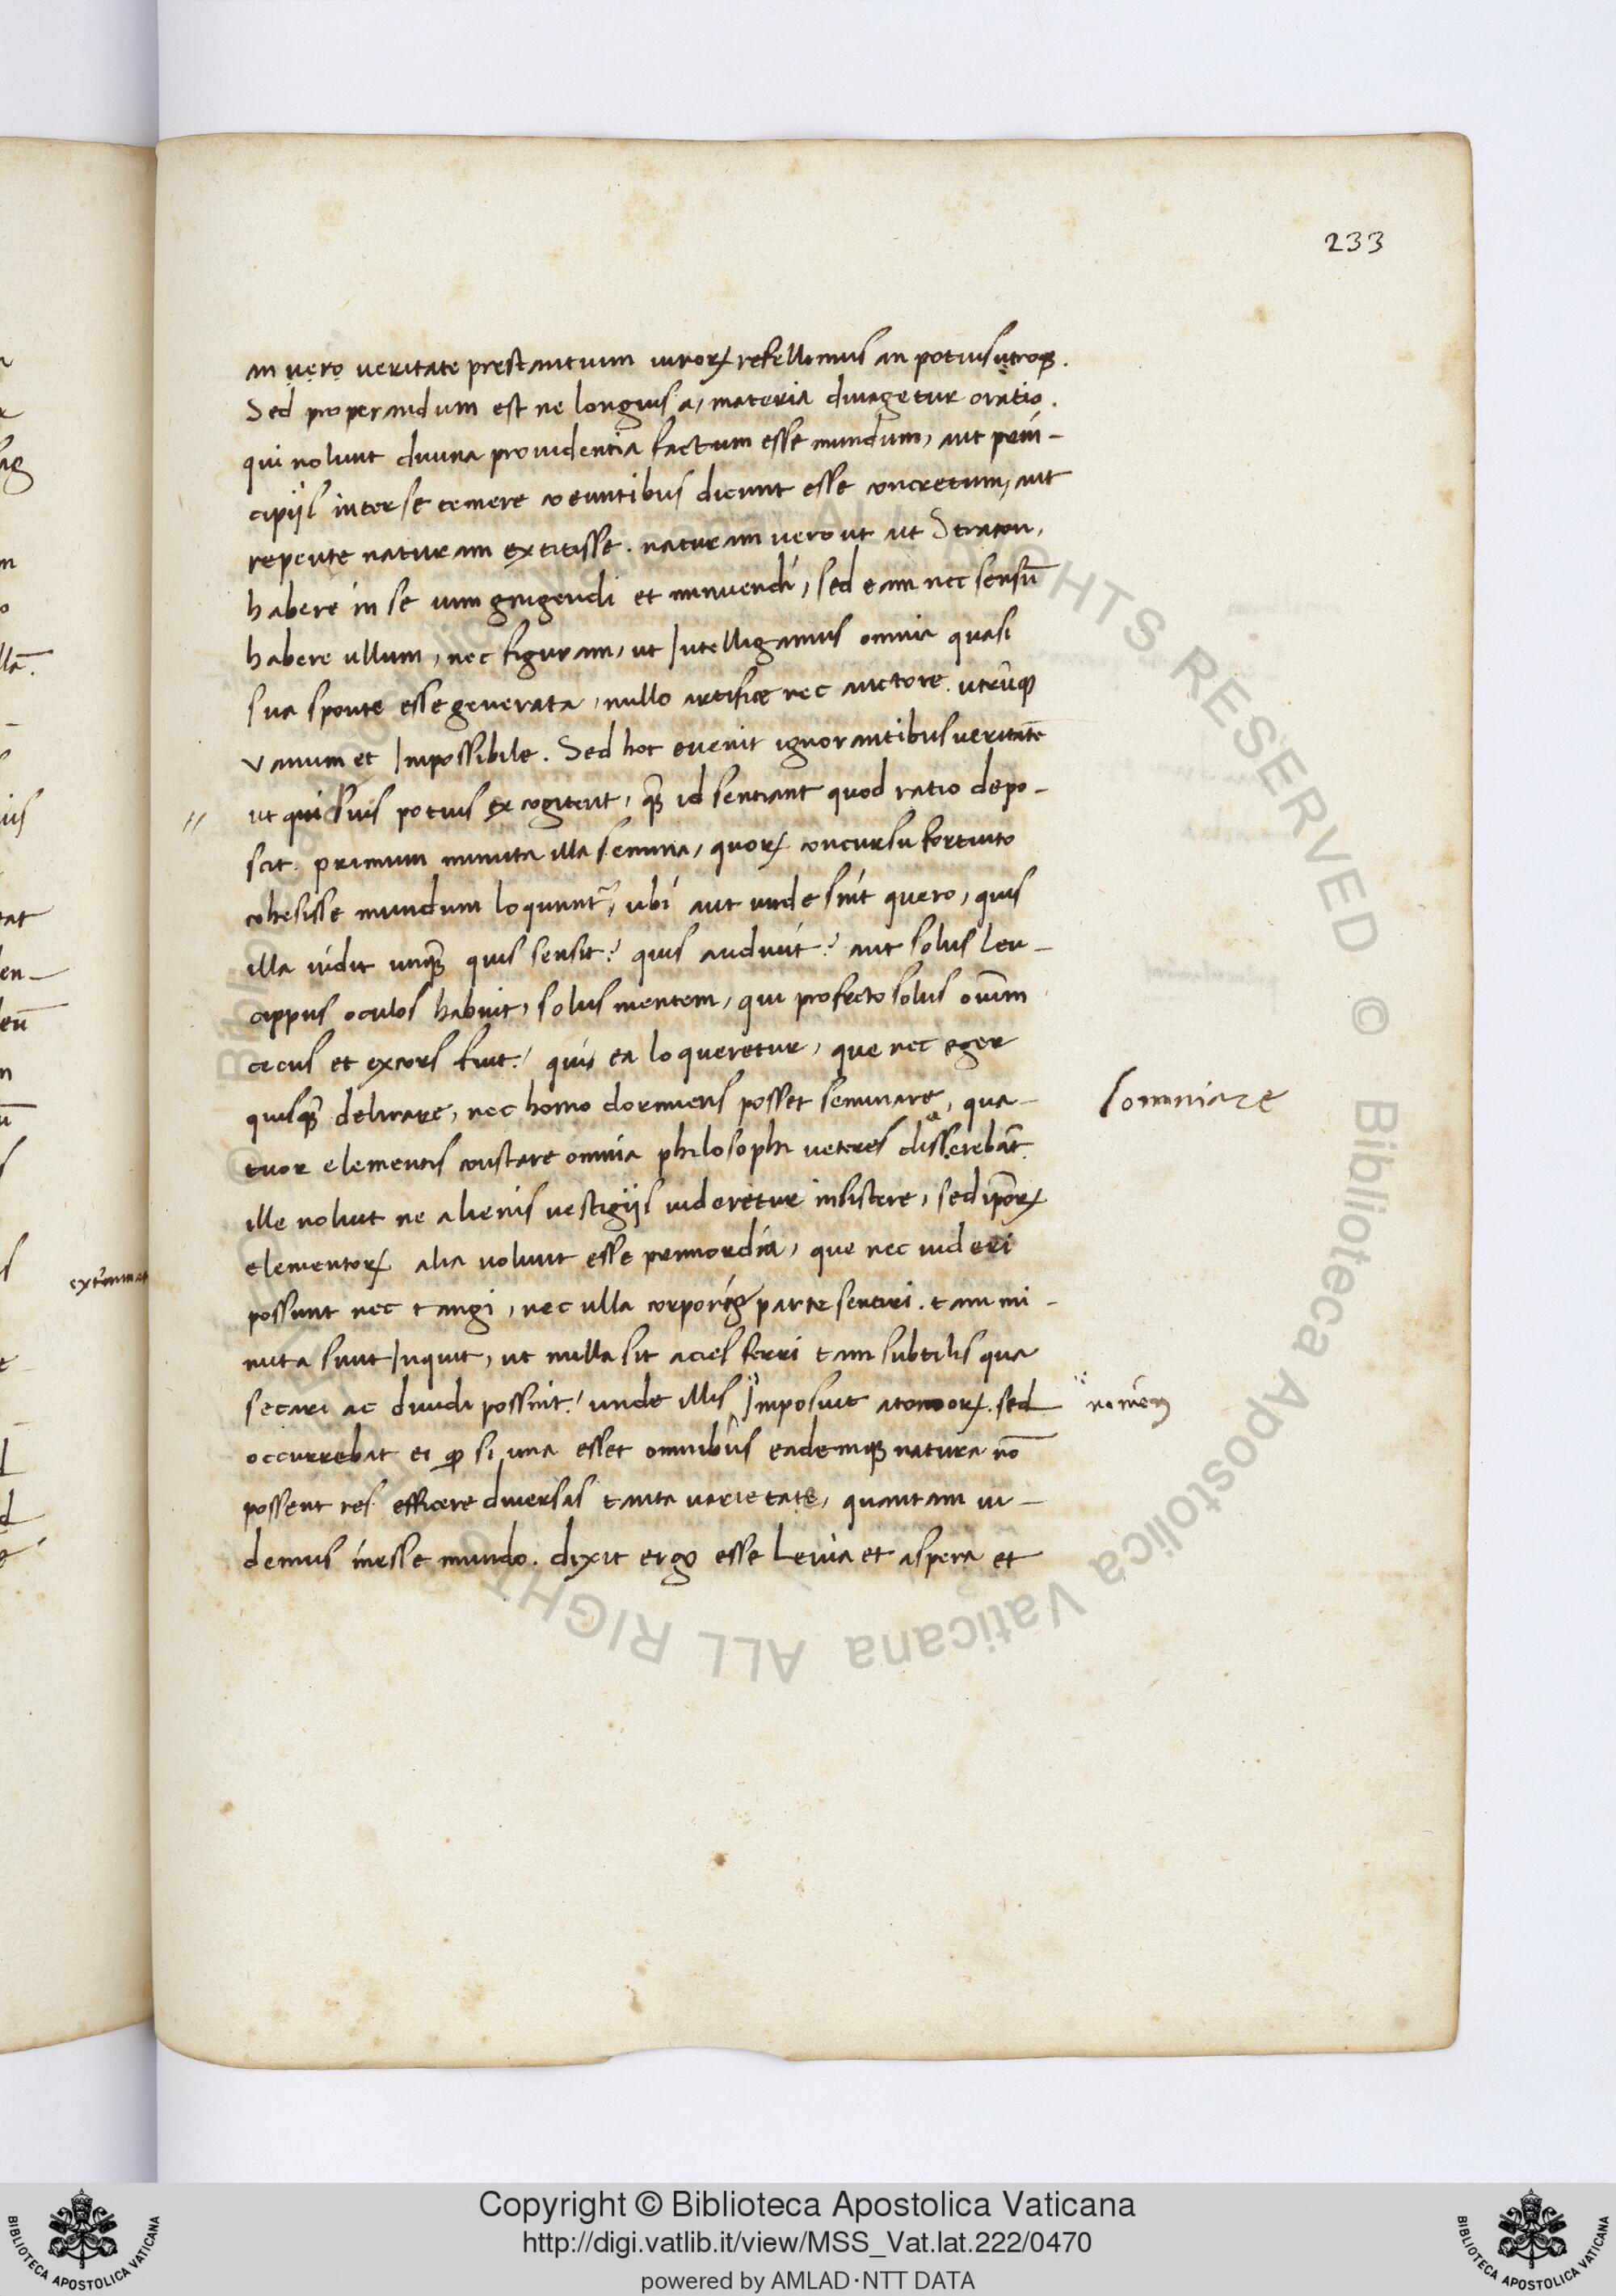 233
an vero veritate prestantium uirorꝝ refellimus an potius utroqꝫ.
Sed properandum est ne longius a, materia diuagetur oratio.
qui nolunt diuina prouidentia factum esse mundum, aut prin-
cipijs inter se temere coeuntibus dicunt esse concretum, aut
repente naturam extitisse. naturam vero ut ait Straton,
habere in se uim gingendi et minuendi, sed eam nec sensū
habere ullum, nec figuram, ut Intelligamus omnia quasi
sua sponte esse generata, nullo artifice nec auctore. utrūqꝫ
vanum et Impossibile. Sed hoc euenit ignorantibus veritatē
ut quiduis potius excogitent, qꝫ id sentiant quod ratio depo-
scit. primum minuta illa semina, quorꝝ concursu fortuito
cohesisse mundum loqunnt̃, ubi aut unde sint quero, quis
illa uidit unqꝫ quis sensit? quis audiuit? aut solus Leu-
cippus oculos habuit, solus mentem, qui profecto solus oium
cecus et excors fuit? quis ea loqueretur, que nec eger
quisqꝫ delirare, nec homo dormiens posset seminare, qua-
somniare
tuor elementis constare omnia philosophi ueteres disserebāt.
ille noluit ne alienis uestigijs uideretur insistere, sed iporꝝ
elementorꝝ alia uoluit esse primordia, que nec uideri
possunt nec tangi, nec ulla corporis parte sentiri. tam mi-
nuta sunt Inquit, ut nulla sit acies ferri tam subtilis qua
secari ac diuidi possint? unde illis Imposuit atomorꝝ. sed
nomen
occurrebat ei qꝫ si una esset omnibus eademqꝫ natura nō
possent res efficere diuersas tanta varietate, quantam ui-
demus inesse mundo. dixit ergo esse Leuia et aspera et
Copyright © Biblioteca Apostolica Vaticana
http://digi.vatlib.it/view/MSS_Vat.lat.222/0470
powered by AMLAD·NTT DATA
BIBLIOTECA APOSTOLICA VATICANA
BIBLIOTECA APOSTOLICA VATICANA
© Biblioteca Apostolica Vaticana ALL RIGHTS RESERVED © Biblioteca Apostolica Vaticana ALL RIGHTS RESERVED